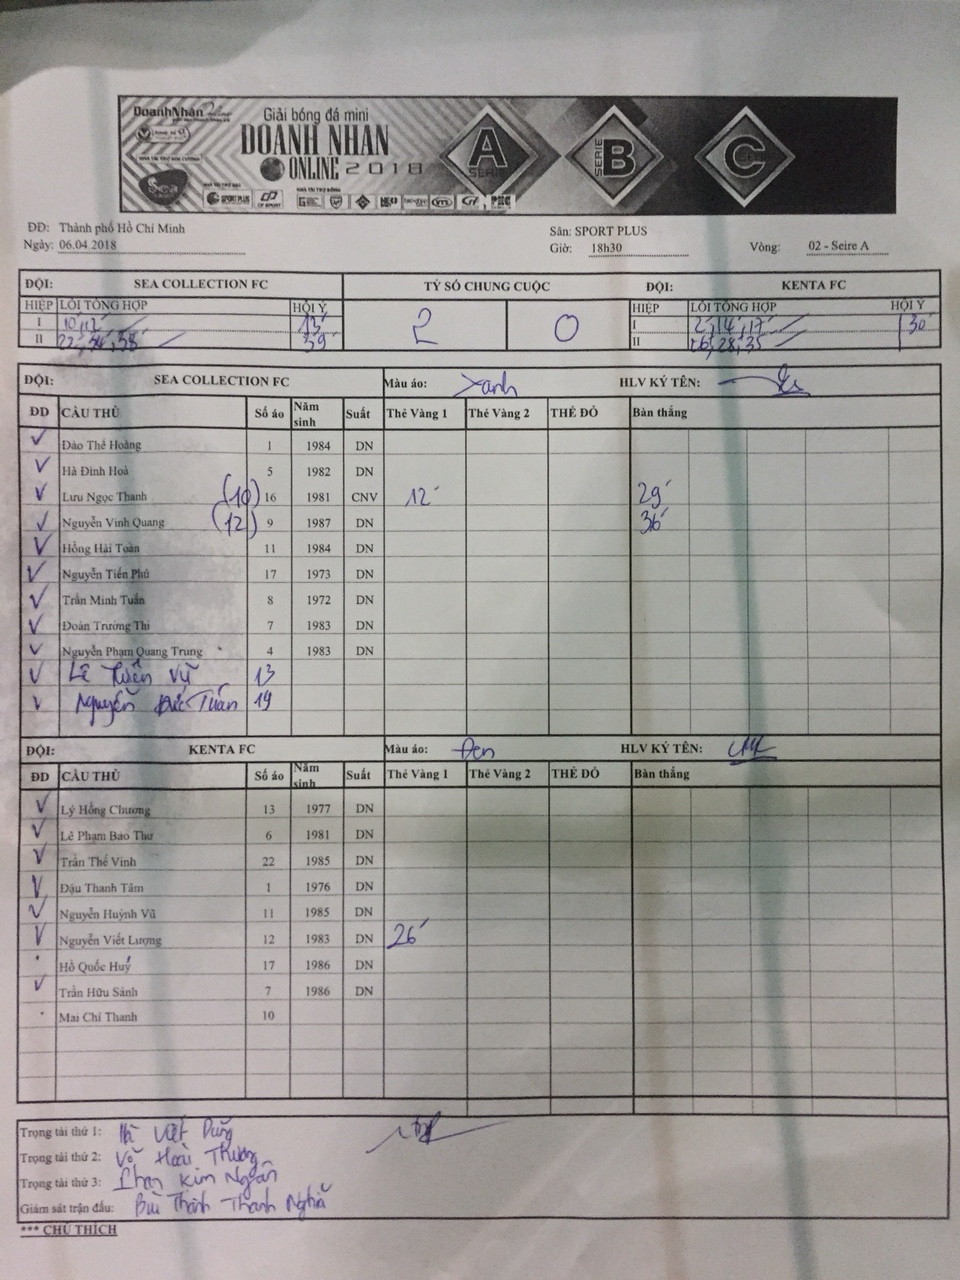 DoanhNhan
Giải bóng đá mini
DOANH NHAN
ONLINE 2018
A SERIE
SERIE B
C
Sea
SPORT PLUS
ĐĐ: Thành phố Hồ Chí Minh
Sân: SPORT PLUS
Ngày: 06.04.2018
Giờ: 18h30 Vòng: 02 - Seire A
ĐỘI: SEA COLLECTION FC TỶ SỐ CHUNG CUỘC ĐỘI: KENTA FC
HIỆP LỖI TỔNG HỢP HỘI Ý 2 0 HIỆP LỖI TỔNG HỢP HỘI Ý
I 10', 12' 13' I 2', 14', 17' 30'
II 22', 34', 38' 39' II 26', 28', 35'
ĐỘI: SEA COLLECTION FC Màu áo: Xanh HLV KÝ TÊN:
ĐD CẦU THỦ Số áo Năm sinh Suất Thẻ Vàng 1 Thẻ Vàng 2 THẺ ĐỎ Bàn thắng
Đào Thế Hoàng 1 1984 DN
Hà Đình Hoà 5 1982 DN
Lưu Ngọc Thanh (10) 16 1981 CNV 12' 29'
Nguyễn Vinh Quang (12) 9 1987 DN 36'
Hồng Hải Toàn 11 1984 DN
Nguyễn Tiến Phú 17 1973 DN
Trần Minh Tuấn 8 1972 DN
Đoàn Trường Thi 7 1983 DN
Nguyễn Phạm Quang Trung 4 1983 DN
Lê Tuấn Vũ 13
Nguyễn Đức Tuấn 19
ĐỘI: KENTA FC Màu áo: Đen HLV KÝ TÊN:
ĐD CẦU THỦ Số áo Năm sinh Suất Thẻ Vàng 1 Thẻ Vàng 2 THẺ ĐỎ Bàn thắng
Lý Hồng Chương 13 1977 DN
Lê Phạm Bao Thư 6 1981 DN
Trần Thế Vinh 22 1985 DN
Đậu Thanh Tâm 1 1976 DN
Nguyễn Huỳnh Vũ 11 1985 DN
Nguyễn Viết Lượng 12 1983 DN 26'
Hồ Quốc Huý 17 1986 DN
Trần Hữu Sánh 7 1986 DN
Mai Chí Thanh 10
Trọng tài thứ 1: Việt Dũng
Trọng tài thứ 2: Võ Hoài Thương
Trọng tài thứ 3: Phan Kim Ngân
Giám sát trận đấu: Bùi Thành Thanh Nghĩa
*** CHÚ THÍCH